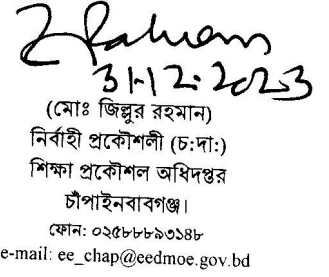 Rahman
31-12-2023
(মোঃ জিল্লুর রহমান)
নির্বাহী প্রকৌশলী (চ:দা:)
শিক্ষা প্রকৌশল অধিদপ্তর
চাঁপাইনবাবগঞ্জ।
ফোন: ০২৫৮৮৮৯৩১৪৮
e-mail: ee_chap@eedmoe.gov.bd